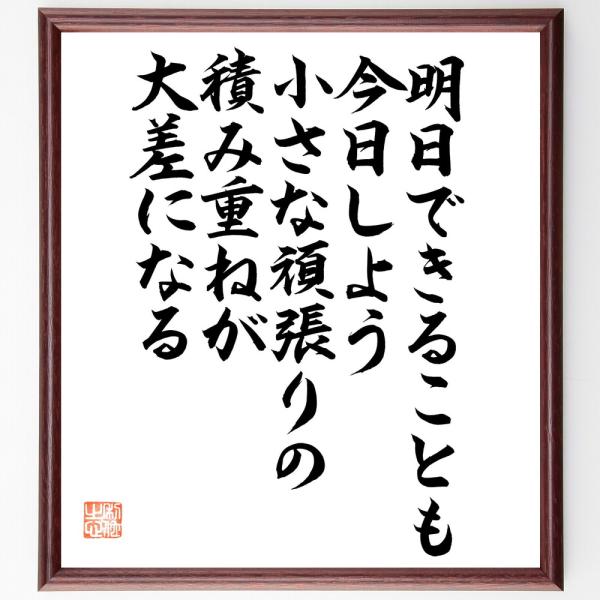 明日できることも
今日しよう
小さな頑張りの
積み重ねが
大差になる